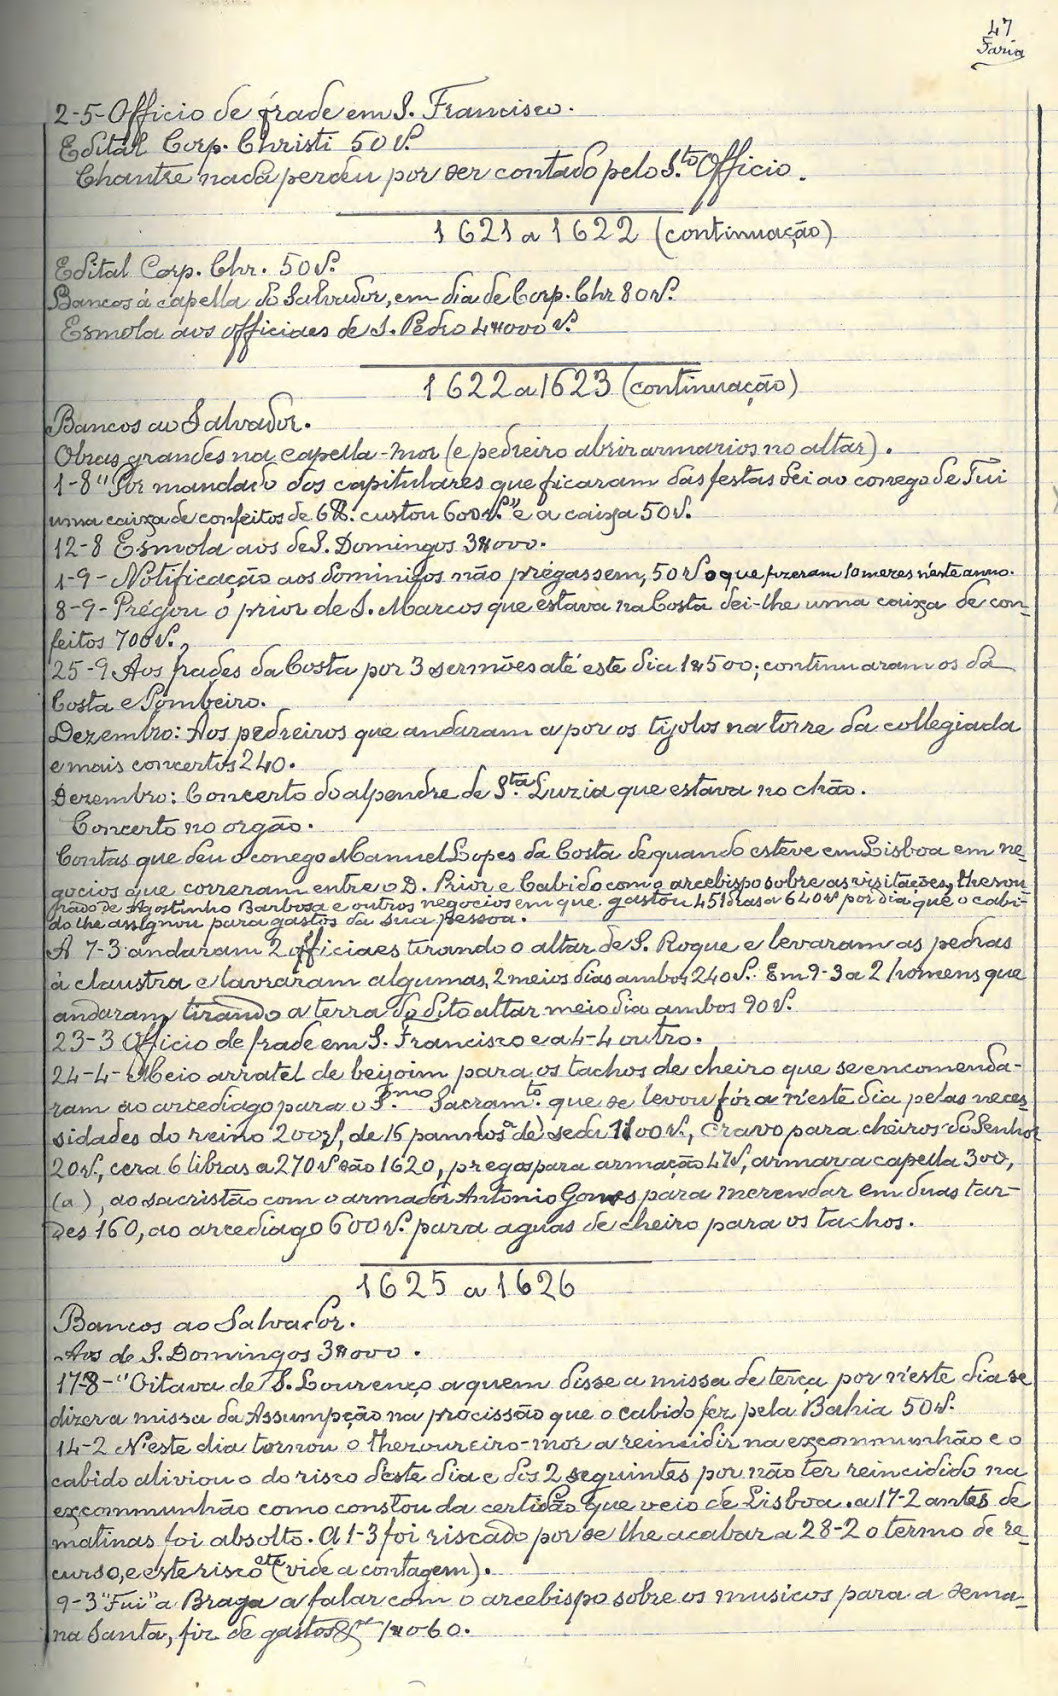 47
Faria
2-5-Officio de frade em S. Francisco.
Edital Corp. Christi 50 rs.
Chantre nada perdeu por ser contado pelo S.to Officio.
1621 a 1622 (continuação)
Edital Corp. Chr. 50 rs.
Bancos á capella do Salvador, em dia de Corp. Chr 80 rs.
Esmola aos officiaes de S. Pedro 4$000 rs.
1622 a 1623 (continuação)
Bancos ao Salvador.
Obras grandes na capella-mor (e pedreiro abrir armarios no altar).
1-8 "Por mandado dos capitulares que ficaram das festas dei ao conego de Tui
uma caixa de confeitos de 6 custou 600 rs." e a caixa 50 rs.
12-8 Esmola aos de S. Domingos 3$000.
1-9- Notificação aos dominicos não prégassem, 50 rs o que fizeram 10 mezes n'este anno.
8-9-Prégou o prior de S. Marcos que estava na Costa dei-lhe uma caixa de con-
feitos 700 rs.,
25-9 Aos frades da Costa por 3 sermões até este dia 1$500; continuaram os da
Costa e Pombeiro.
Dezembro: Aos pedreiros que andaram a por os tijolos na torre da collegiada
e mais concertos 240.
Dezembro: Concerto do alpendre de S.ta Luzia que estava no chão.
Concerto no orgão.
Contas que deu o conego Manuel Lopes da Costa de quando esteve em Lisboa em ne-
gocios que correram entre o D. Prior e Cabido com o arcebispo sobre as visitações, thesou-
rado de Agostinho Barbosa e outros negocios em que gastou 451 dias a 640 rs por dia que o cabi-
do lhe assignou para gastos da sua pessoa.
A 7-3 andaram 2 officiaes tirando o altar de S. Roque e levaram as pedras
á claustra e lavraram algumas, 2 meios dias ambos 240 rs. Em 9-3 a 2 homens que
andaram tirando a terra do dito altar meio dia ambos 90 rs.
23-3 Officio de frade em S. Francisco e a 4-4 outro.
24-4- Meio arratel de beijoim para os tachos de cheiro que se encomenda-
ram ao arcediago para o S.mo Sacram.to que se levou fóra n'este dia pelas neces-
sidades do reino 200 rs, de 15 pannos de seda 1100 rs, cravo para cheiros do Senhor
20 rs, cera 6 libras a 270 rs são 1620, pregos para armação 47 rs, armar a capella 300,
(a), ao sacristão com o armador António Gomes para merendar em duas tar-
des 160, ao arcediago 600 rs. para aguas de cheiro para os tachos.
1625 a 1626
Bancos ao Salvador.
Aos de S. Domingos 3$000.
17-8-"Oitava de S. Lourenço a quem disse a missa de terça por n'este dia se
dizer a missa da Assumpção na procissão que o cabido fez pela Bahia 50 rs.
14-2 N'este dia tornou o thezoureiro-mor a reincidir na excommunhão e o
cabido aliviou o do risco deste dia e dos 2 seguintes por não ter reincidido na
excommunhão como constou da certidão que veio de Lisboa. a 17-2 antes de
matinas foi absolto. A 1-3 foi riscado por se lhe acabar a 28-2 o termo de re-
curso, e este risco (vide a contagem).
9-3 "Fui" a Braga a falar com o arcebispo sobre os musicos para a sema-
na Santa, fiz de gastos 1$060.